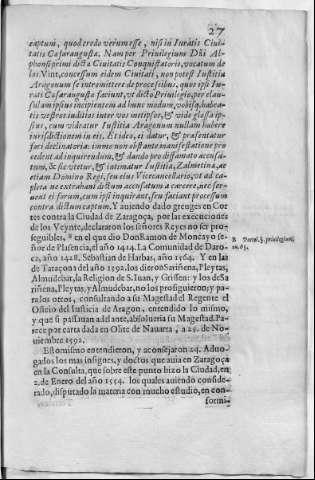 27
captum, quod credo verum esse, nisi in Iuratis Ciui-
tatis Cæsaraugustæ. Nam per Priuilegium Dñi Al-
phonsi primi dictæ Ciuitatis Conquistatoris, vocatum de
los Vint, concessum eidem Ciuitati, non potest Iustitia
Aragonum se intromittere de processibus, quos ipsi Iu-
rati Cæsaraugustæ faciunt, vt dicto Priuilegio, per clau-
sulam ipsius incipientem ad hunc modum, vobis, & habea-
tis vestros iuditios inter vos metipsos, & vide glossa ip-
sius, cum videatur Iustitia Aragonum nullam habere
iurisdictionem in et. Et ideo, si datur, & præsentatur
sibi declinatoria immo non obstante manifestatione pro
cedent ad inquirendum, & dando pro diffamato accusa-
tum, & sic vetetur, & intimatur Iustitia, Zalmetina, ac
etiam Domino Regi, seu eius Vicecancellario, vt ad ca-
pita ne extrahant dictum accusatum a carcere, nec ser-
uent ei forum, cum ipsi inquirant, seu faciant processum
contra dictum captum. Y auiendo dado greuges en Cor
tes contra la Ciudad de Zaragoça, por las execuciones
de los Veynte, declararon los señores Reyes no ser pro-
seguibles, * en el que dio Don Ramon de Moncayo se-
ñor de Plasencia, el año 1414. La Comunidad de Daro-
ca, año 1428. Sebastian de Harbas, año 1564. Y en las
de Taraçona del año 1592. los dieron Sariñena, Pleytas,
Almudebar, la Religion de S. Iuan, y Grissen: y los de Sa
riñena, Pleytas, y Almudebar, no los prosiguieron; y pa-
ra los otros, consultando a su Magestad el Regente el
Oficio del Iusticia de Aragon, entendido lo mismo,
y que si passauan adelante, absolueria su Magestad. Pa-
rece por carta dada en Olite de Nauarra, a 25. de No-
uiembre 1592.
Esto mismo entendieron, y aconsejaron 24. Aduo-
gados los mas insignes, y doctos que auia en Zaragoça
en la Consulta, que sobre este punto hizo la Ciudad, en
2. de Enero del año 1554. los quales auiendo conside-
rado, disputado la materia con mucho estudio, en con-
formi-
Portol. §. priuilegium,